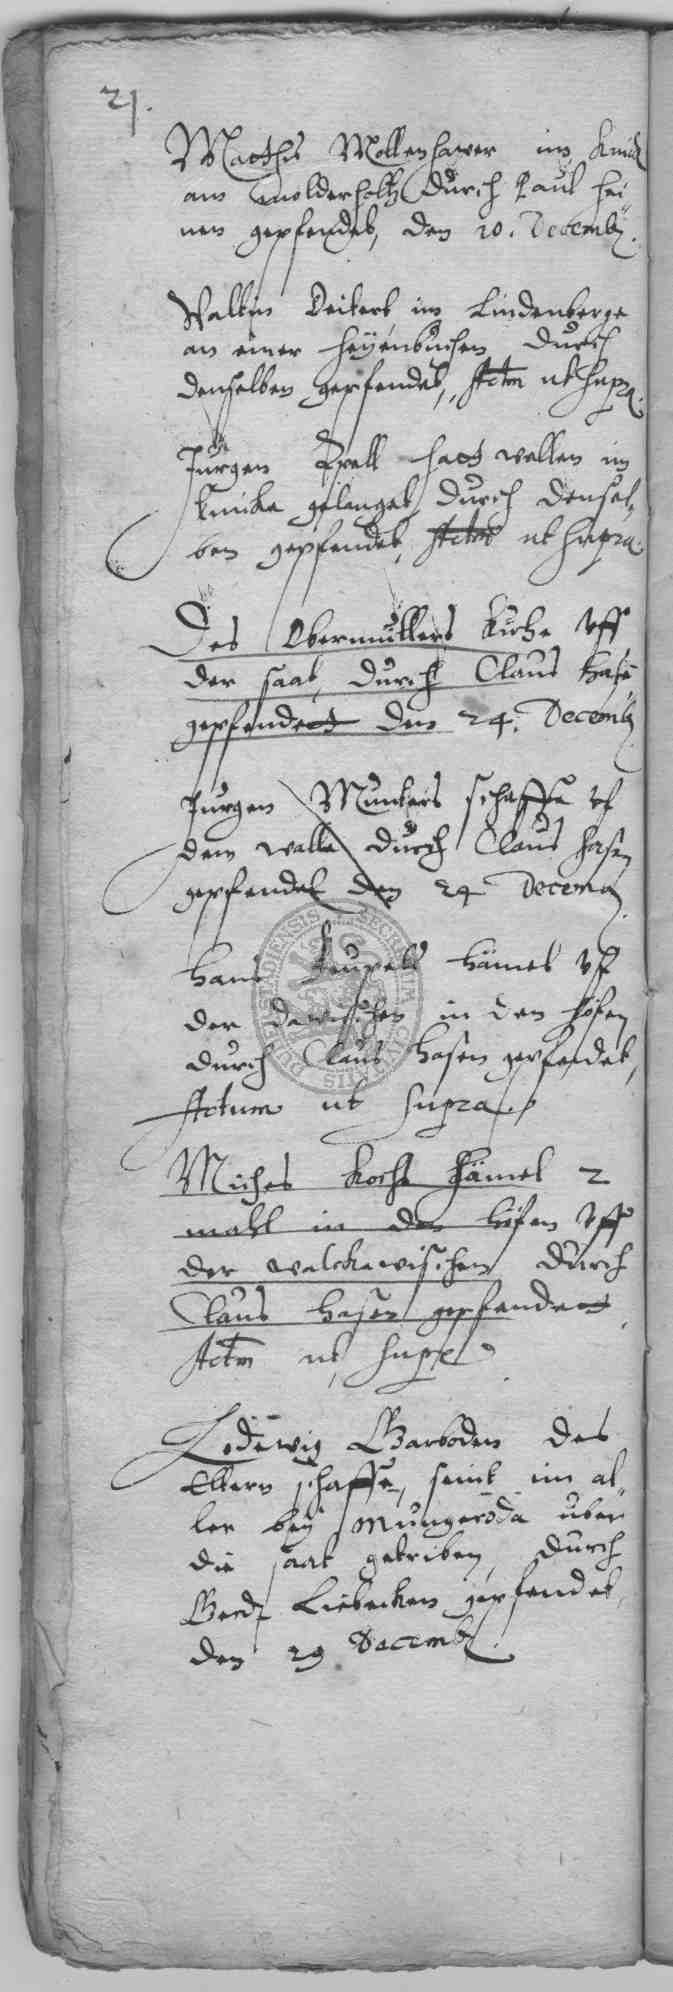 21.
Matthis Mollenhawer im Knick
am wolderholtz durch Paul Hei
nen gepfendet, den 20. Decemb.
Valtin Deikert im Lindenberge
an einer Heyenbuchen durch
denselben gepfendet, Actm ut supra.
Jurgen Apell hatt wellen im
Knicke gelanget, durch densel,
ben gepfendet, Actm ut supra.
Des Obermullers Kuhe vff
der saat, durch Claus Hasē
gepfendett den 24. Decemb
Jurgen Munters schaffe vf
dem walle durch Claus Hasen
gepfendet den 24 Decemb.
Hans Hämel vff
der in den höfen
durch Claus Hasen gepfendet,
Actum ut supra.
Miches Kochs Hämel 2
mahl in den höfen vff
der walckewischen durch
Claus Hasen gepfendett
Actm ut supra
Lodewig Barboden des
Eltern schaffe, seint im al
ler bey Mungeroda uber
die saat getriben, durch
Gerdt Liebecken gepfendet,
den 29 Decemb.
SECRETUM CIVITATIS DUDERSTADIENSIS